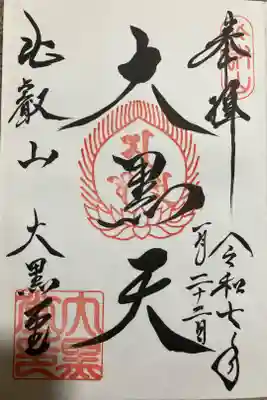 奉拝
令和七年
一月二十二日
大黒天
比叡山 大黒堂